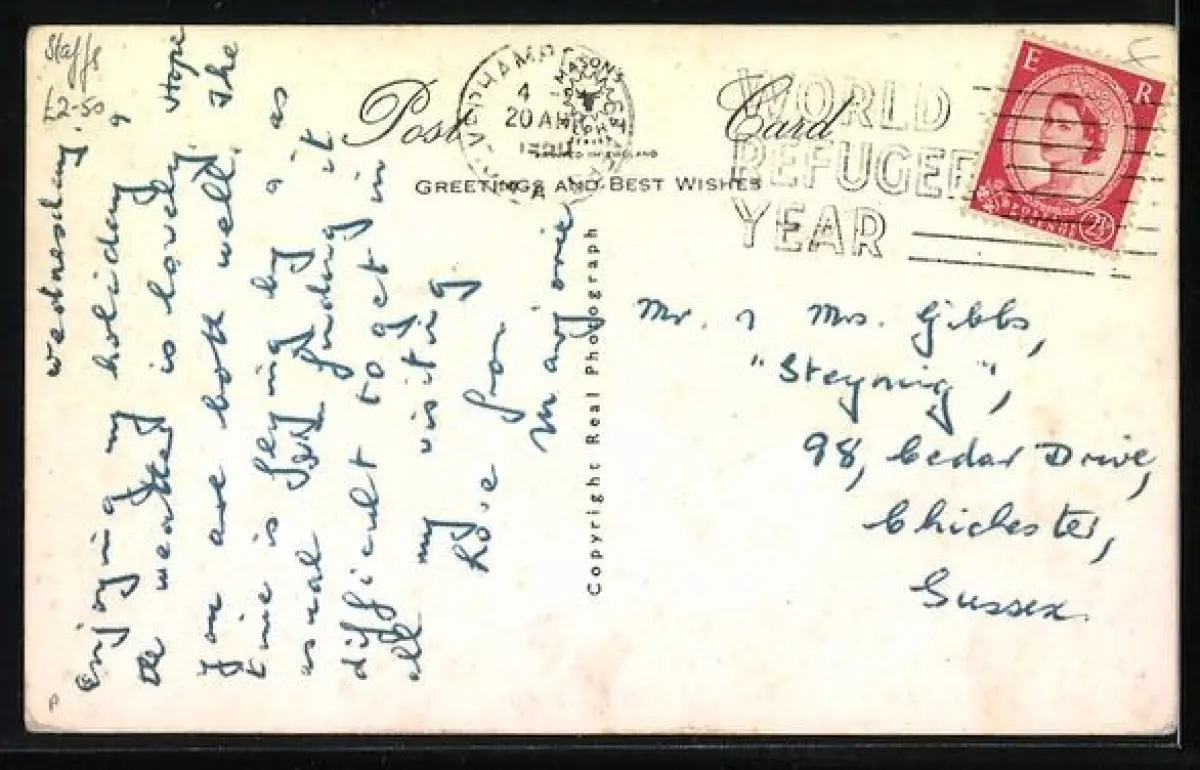 Staffs
£2-50
Wednesday.
Enjoying my holiday &
the weather is lovely. Hope
you are both well. The
time is flying by & as
usual I'm finding it
difficult to get in
all my visiting
love from
Marjorie
Post Card
GREETINGS AND BEST WISHES
Copyright Real Photograph
4
20 AP
WORLD
REFUGEE
YEAR
E R
2½
Mr. & Mrs. Gibbs,
"Steyning",
98, Cedar Drive,
Chichester,
Sussex.